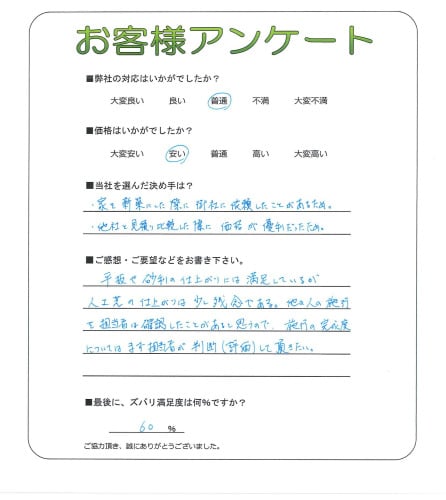 お客様アンケート
■弊社の対応はいかがでしたか？
大変良い 良い 普通 不満 大変不満
■価格はいかがでしたか？
大変安い 安い 普通 高い 大変高い
■当社を選んだ決め手は？
・家を新築にした際に御社に依頼したことがあるため。
・他社と見積り比較した際に価格が優利だったため。
■ご感想・ご要望などをお書き下さい。
平板や砂利の仕上がりには満足しているが
人工芝の仕上がりは少し残念である。他の人の施行
を担当者は確認したことがあると思うので、施行の完成度
についてはまず担当者が判断(評価)して頂きたい。
■最後に、ズバリ満足度は何%ですか？
60 %
ご協力頂き、誠にありがとうございました。